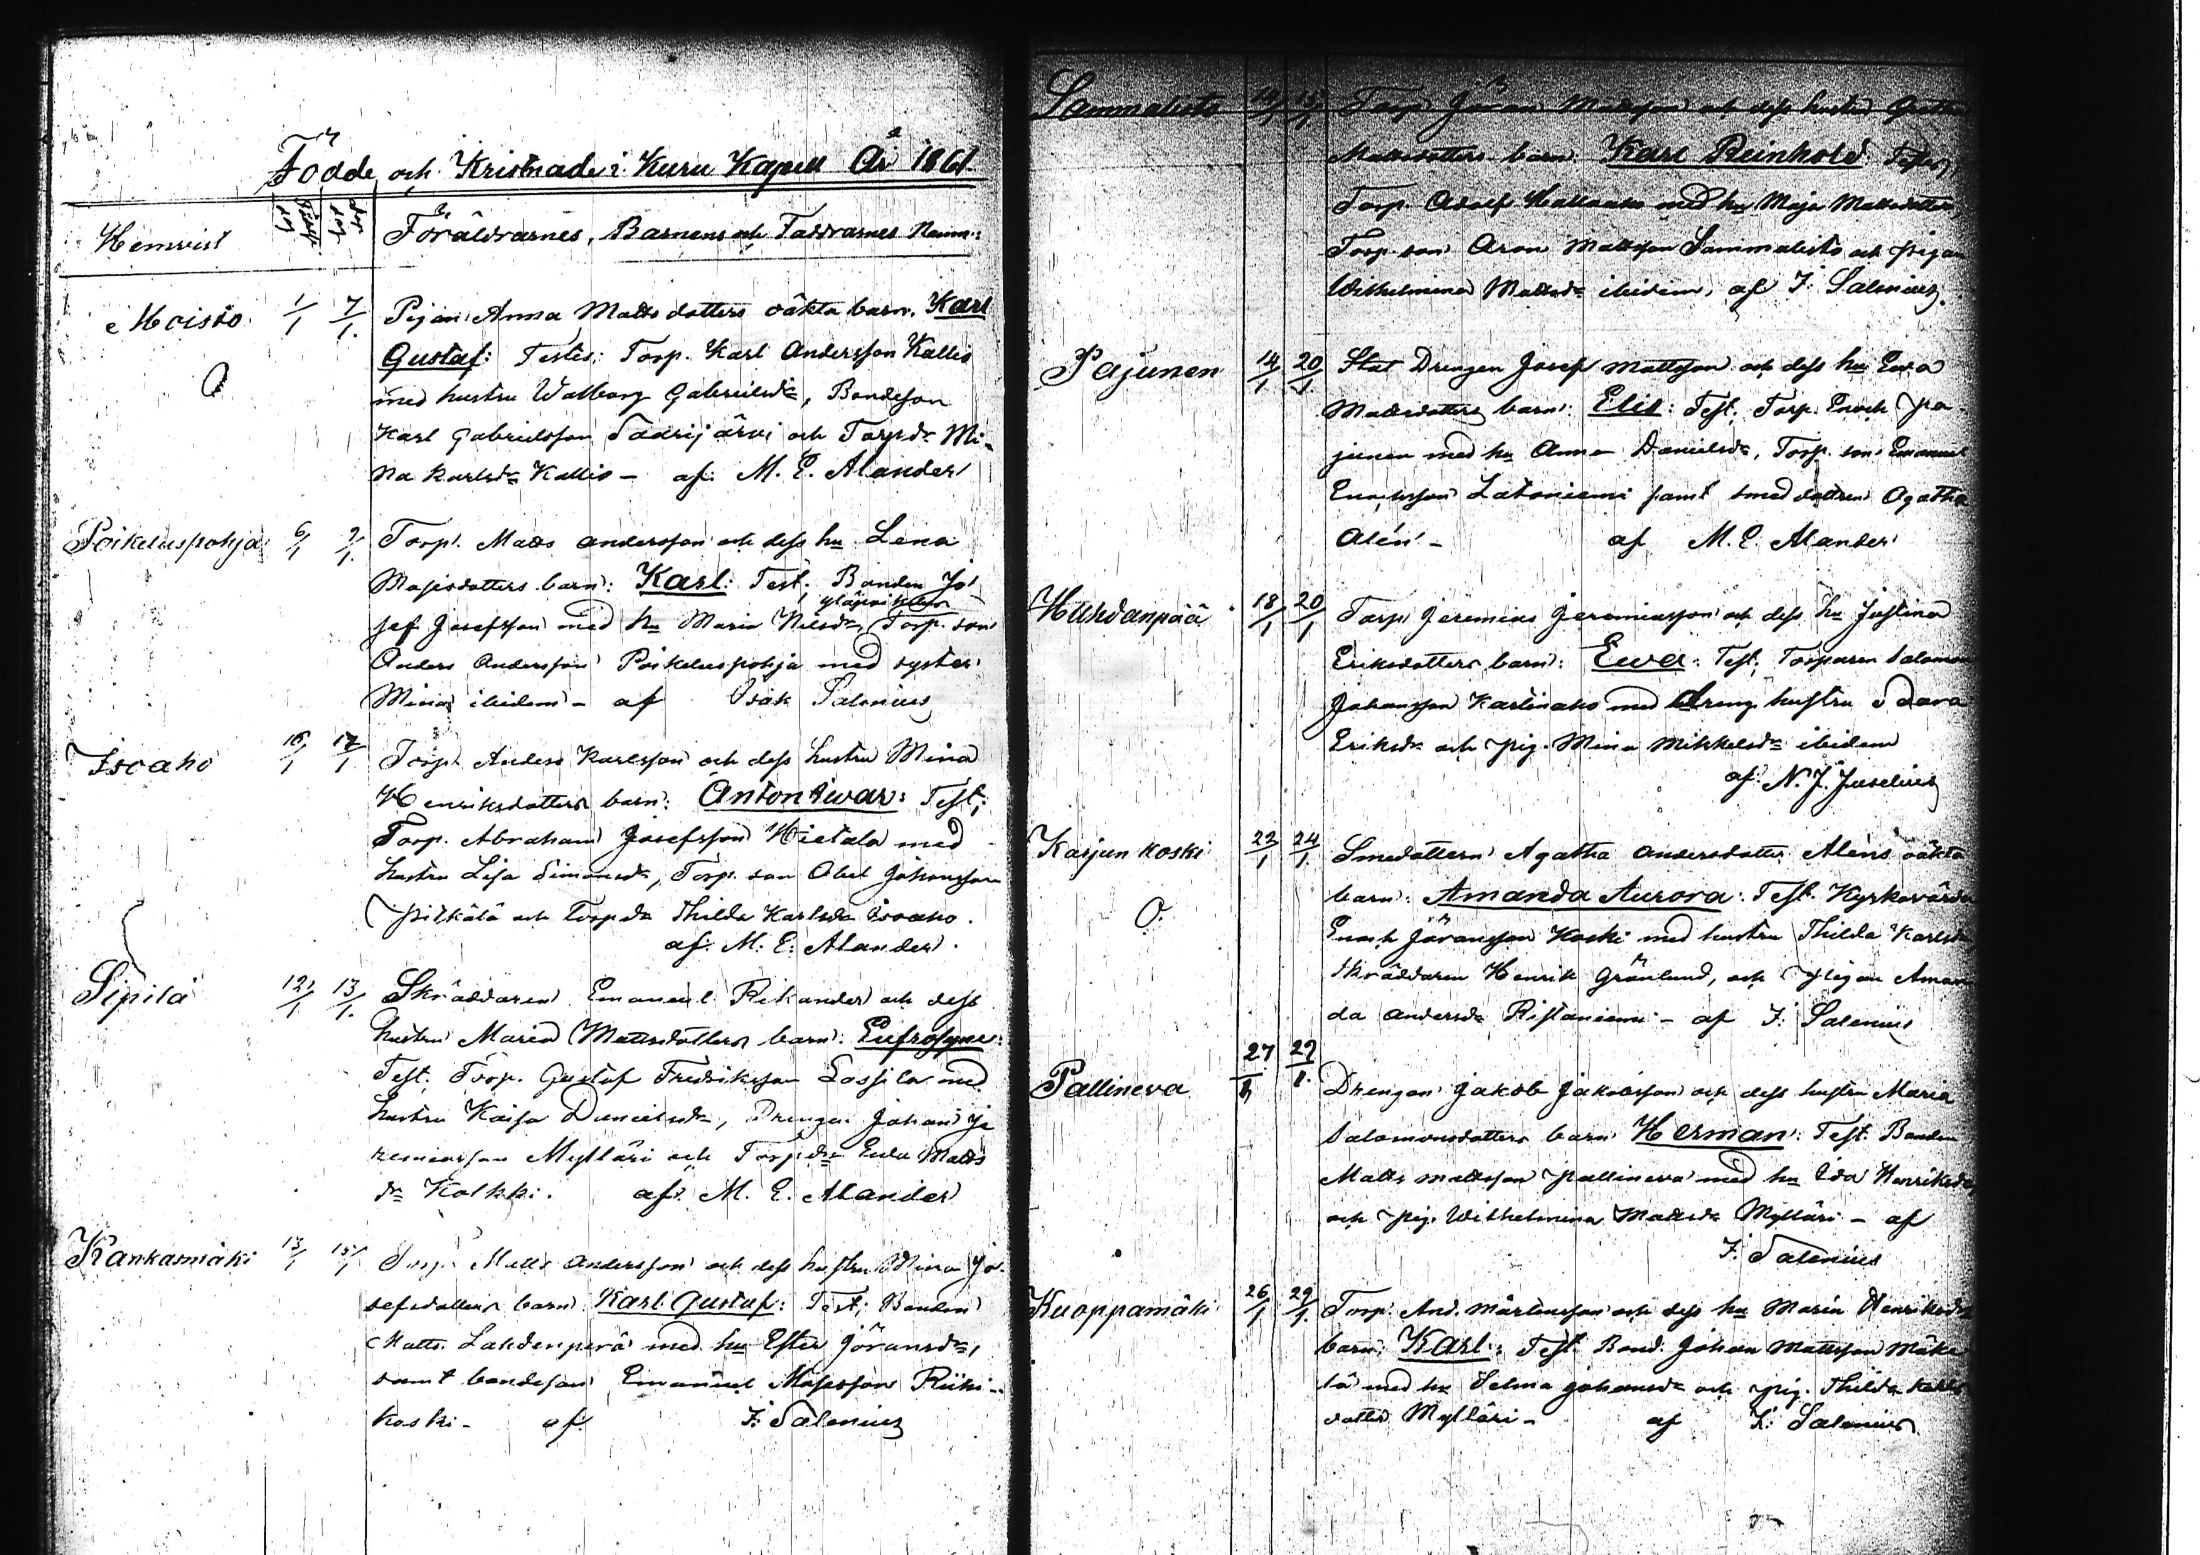 Födde och Kristnade i Kuru Kapell År 1861.
Hemvist Föräldrarnes, Barnens och Faddrarnes Namn:
Moisio 1/1 7/1. Pigan Anna Matts dotters oäkta barn. Karl
Gustaf: Testes: Torp. Karl Andersson Kallio
O med hustru Walborg Gabrielsdr, Bondeson
Karl Gabrielsson Saarijärvi och Torpdr Mi-
na Karlsdr Kallio - af. M. E. Alander
Poikeluspohja 6/1 9/1. Torp. Matts Andersson och dess hu Lena
Mosisdotters barn: Karl: Test; Bonden Jo-
sef Josefsson med hu Maria Nilsdr, Torp. son
Anders Andersson Poikeluspohja med syster
Mina ibidem - af Isak Salenius
Isoaho 16/1 17/1 Torp. Anders Karlsson och dess hustru Mina
Henriksdotters barn: Anton Iwar: Test;
Torp. Abraham Josefsson Hietala med
hustru Lisa Simonsdr, Torp. son Abel Johansson
Pitkälä och Torpdr Thilda Karlsdr Isoaho.
af. M. E. Alander.
Sipilä 12/1 13/1. Skräddaren Emanuel Rikander och dess
hustru Maria Mattsdotters barn: Eufrosyne:
Test. Torp. Gustaf Fredriksson Lassila med
hustru Kaisa Danielsdr, Drengen Johan Je
remiasson Mylläri och Torpdr Eva Matts
dr Kolkki. af. M. E. Alander
Kankamäki 13/1 15/1 Torp. Matts Andersson och dess hustru Mina Jo-
sefsdotters barn: Karl Gustaf: Test; Bonden
Matts Lahdenperä med hu Ester Göransdr,
samt bondeson Emanuel Mosisson Riihi-
koski - af. I. Salenius
Sammalisto 14/1 15/1 Torp. Göran Mattsson och dess hustru
Mattsdotters barn: Karl Reinhold: Testes,
Torp. Adolf med hu Maja Mattsdotter,
Torp. son Aron Mattsson Sammalisto och pigan
Wilhelmina Mattsdr ibidem, af I. Salenius.
Pajunen 14/1 20/1. Stat Drengen Josef Mattsson och dess hu Ewa
Mattsdotters barn: Elis: Test. Torp. Enoch Pa-
junen med hu Anna Danielsdr, Torp. son Emanuel
Enochsson Latoniemi samt smeddottren Agatha
Alén - af M. E. Alander
Huhdanpää 18/1 20/1 Torp. Jeremias Jeremiasson och dess hu Justina
Eriksdotters barn: Ewa: Test; Torparen Salomon
Johansson Kartinaho med dreng hustru Sara
Eriksdr och pig. Mina Mikkelsdr ibidem
af. N. J. Juselius
Karjunkoski 22/1 24/1. Smedottern Agatha Andersdotter Aléns oäkta
barn: Amanda Aurora: Test. Kyrkovärden
O. Enoch Göransson Koski med hustru Thilda Karlsdr
skräddaren Henrik Grönlund, och Pigan Aman
da Andersdr Ristaniemi - af I. Salenius
Pallineva 27/1 29/1. Drengen Jakob Jakobsson och dess hustru Maria
Salomonsdotters barn Herman: Test. Bonden
Matts Mattsson Pallineva med hu Eva Henriksdr
och pig. Wilhelmina Mattsdr Mylläri - af
I. Salenius
Kuoppamäki 26/1 29/1. Torp. And. Mårtensson och dess hu Maria Henriksdr
barn: Karl: Test. Bond. Johan Mattsson Mäke
lä med hu Selma Johansdr och pig. Thilda Karls
dotter Mylläri - af I. Salenius